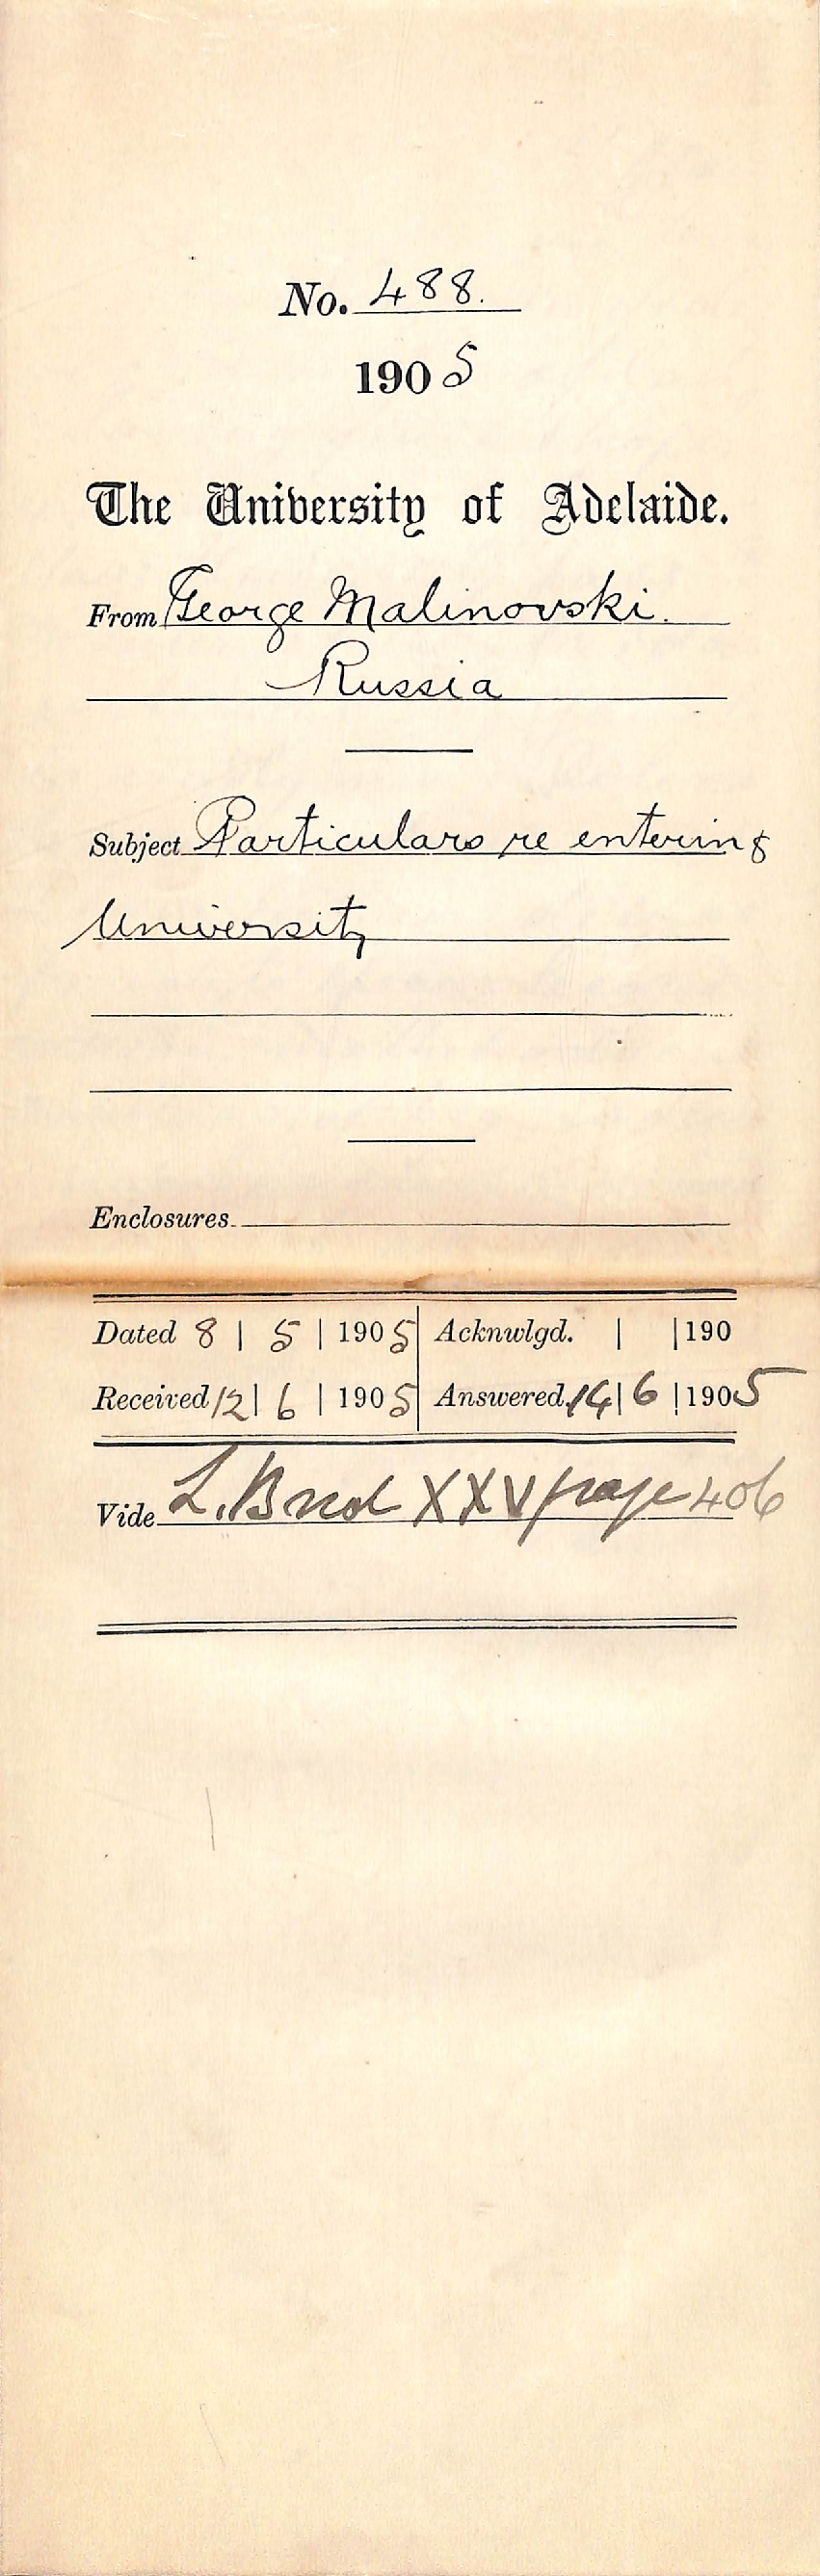 No. 488.
1905
The University of Adelaide.
From George Malinovski.
Russia
Subject Particulars re entering
University
Enclosures
Dated 8 | 5 | 1905 Acknwlgd. | | 190
Received 12 | 6 | 1905 Answered 14 | 6 | 1905
Vide L. B XXV page 406